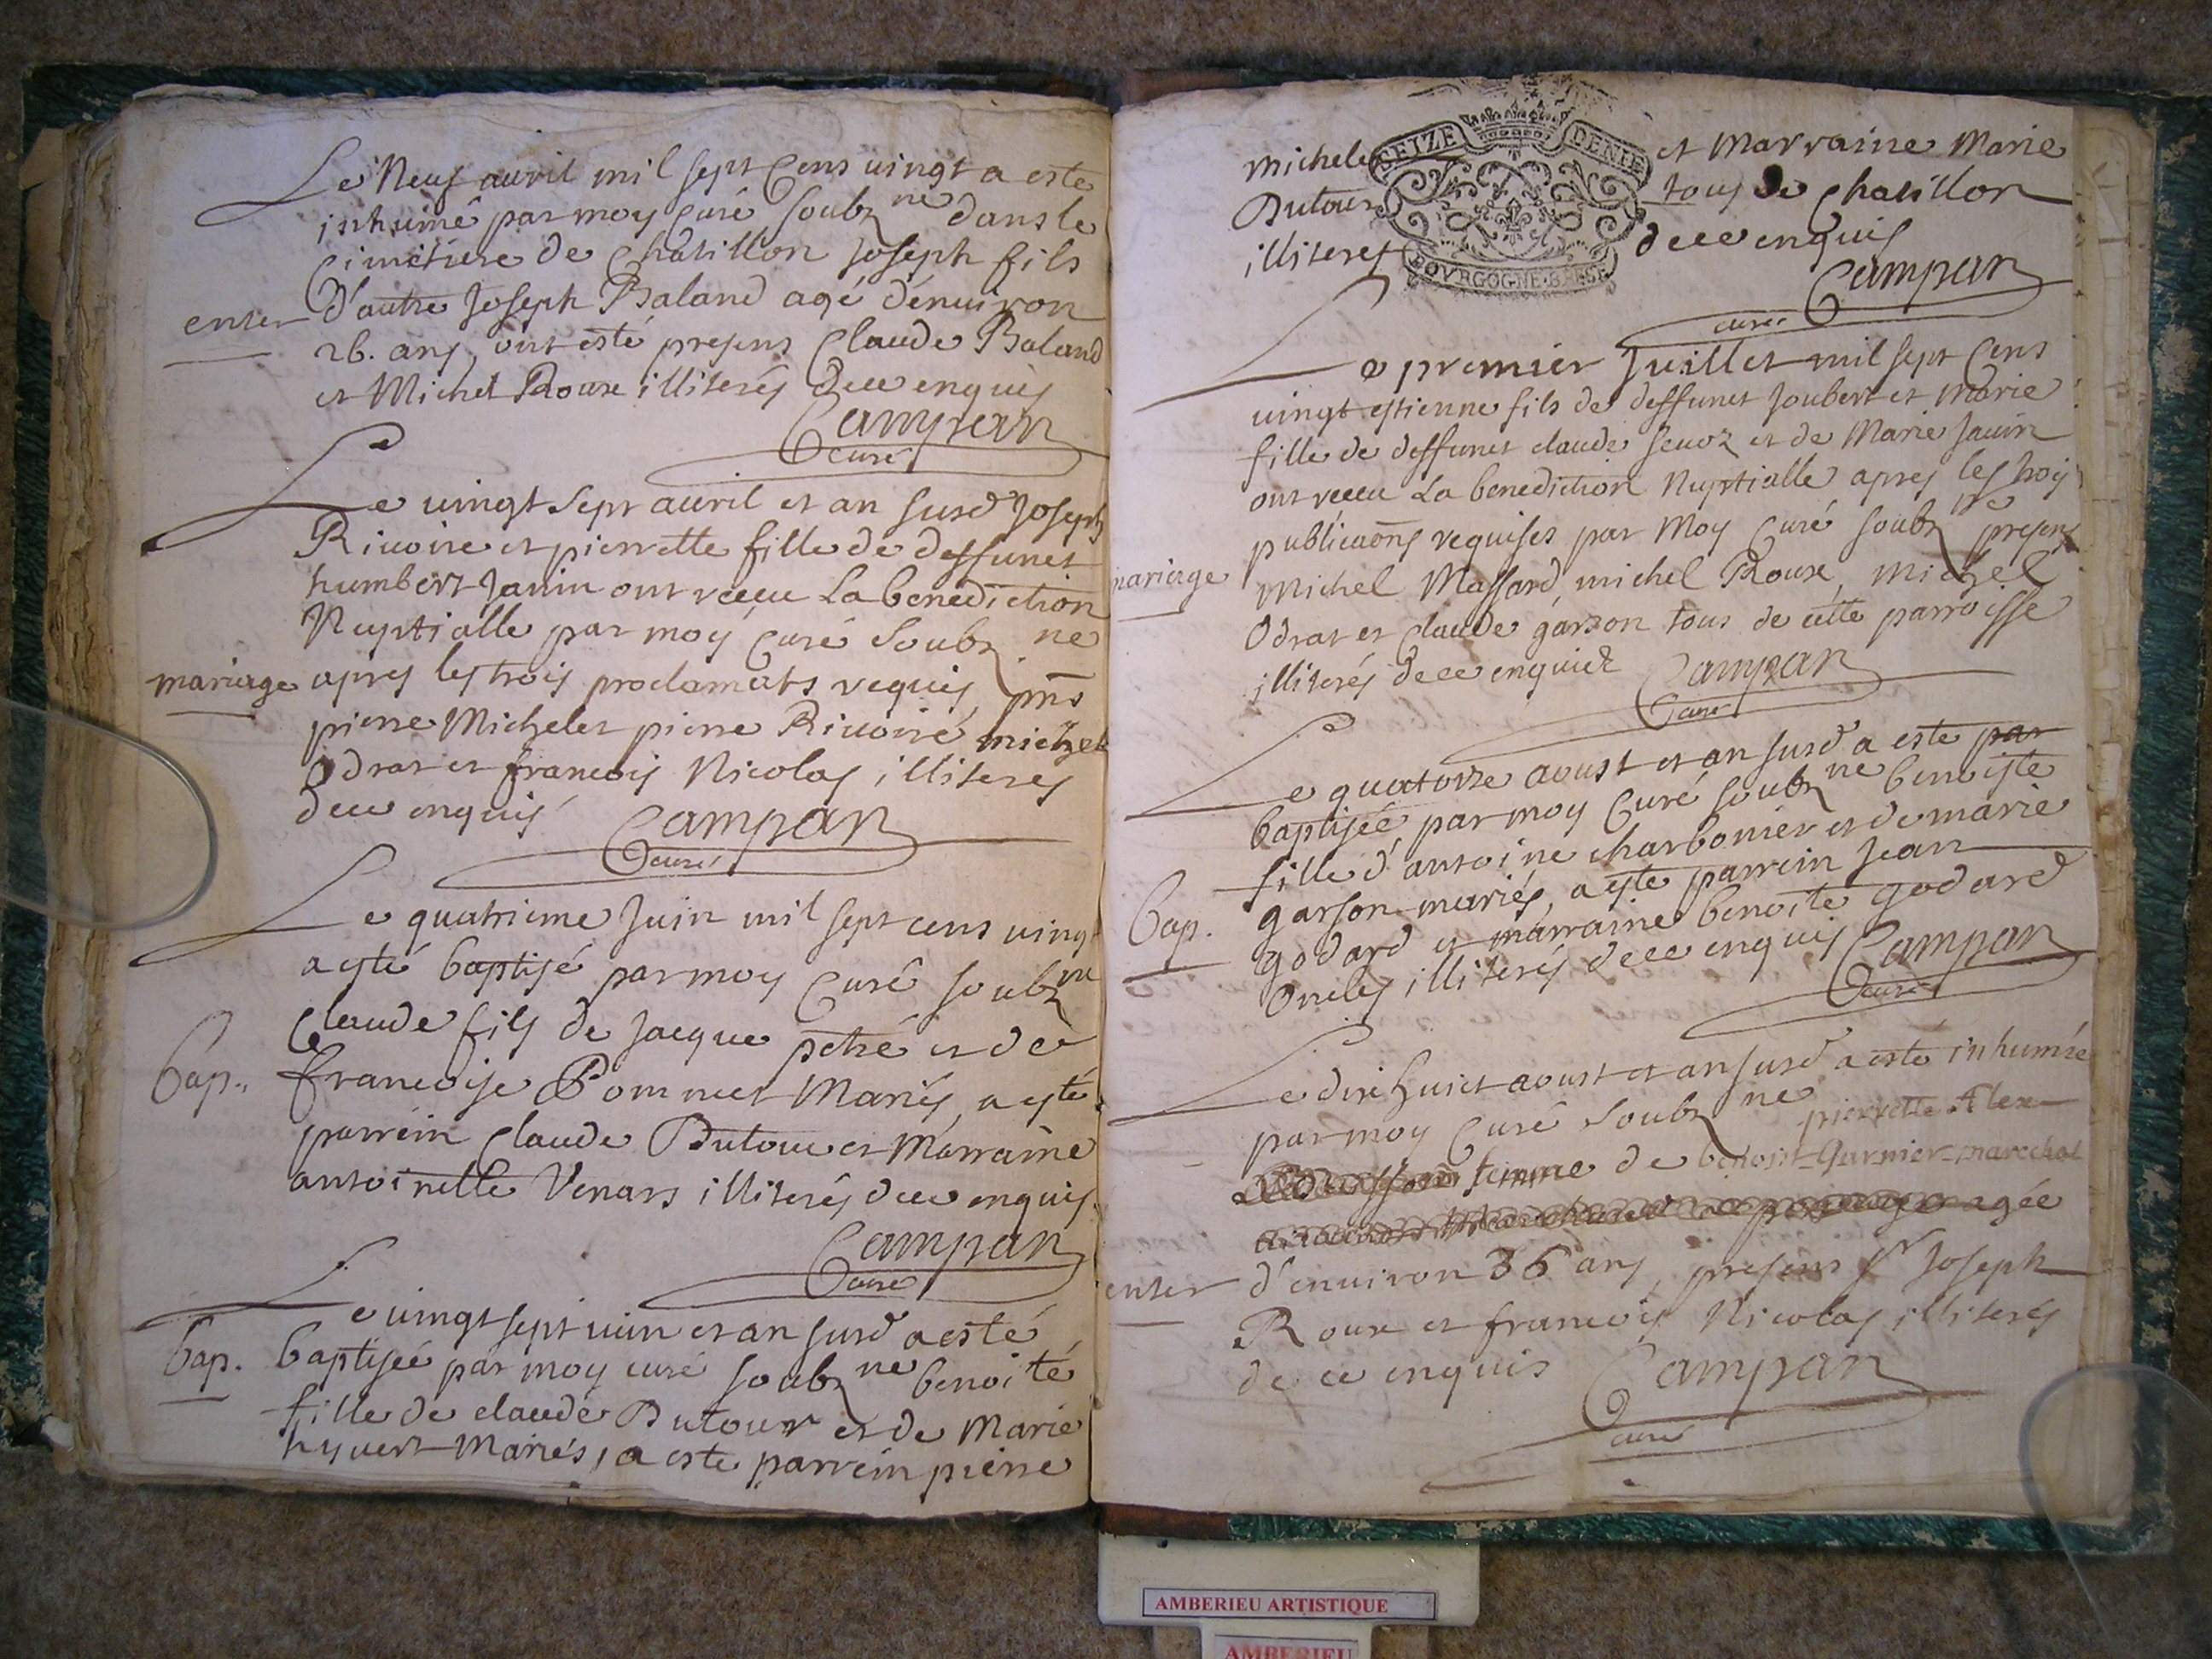 Le Neuf auril mil sept Cens uingt a este
inhumé par moy Curé soubz ne dans le
Cimetiere de Chatillon Joseph fils
enter d'autre Joseph Baland agé d'enuiron
26. ans, ont esté presens Claude Baland
et Michel Roux illiterés dece enquis
Campan
curé
Le uingt sept auril et an susd Joseph
Riuoire et pierrette fille de deffunct
humbert Janin ont receu La benediction
Nuptialle par moy Curé Soubz ne
mariage apres les trois proclamats requis, pns
pierre Michelet pierre Riuoire michel
Odrat et francois Nicolas illiteres
dece enquis Campan
curé
Le quatrieme Juin mil sept cens uingt
a esté baptisé par moy Curé soubz ne
Claude fils de Jacque petré et de
Bap. francoise Pommet Mariés, a esté
parrein Claude Dutour et Marraine
antoinette Venars illiterés dece enquis.
Campan
Curé
Le uingt sept iuin et an susd a esté
bap. baptisée par moy curé soubz ne benoite
fille de claude Dutour et de Marie
hyuert Mariés, a este parrein pierre
michelet et Marraine Marie
Dutour tous de Chatillon
illiteres dece enquis
SEIZE DENIE
BOVRGOGNE·BRESSE
Campan
curé
Le premier Juillet mil sept Cens
uingt estienne fils de deffunct Joubert et Marie
fille de deffunct claude seuoz et de Marie Janin
ont receu La benediction Nuptialle apres les trois
publicaons requises par Moy Curé soubz ne presens
mariage Michel Massard, michel Roux, Michel
Odrat et Claude garson tous de cette parroisse
illiterés dece enquiez Campan
Curé
Le quatorze aoust et an susd a este par
baptisée par moy Curé soubz ne benoiste
fille d'antoine charbonier et de marie
Bap. garson mariés, a este parrein Jean
godard et marraine benoite godard
Oncles illiterés dece enquis Campan
Curé
Le dixhuict aoust et an susd a esté inhumée
par moy Curé Soubz ne pierrette Alex
femme de benoist Garnier marechal
agée
enter d'enuiron 36 ans, presens Sr Joseph
Roux et francois Nicolas illiterés
de ce enquis Campan
curé
AMBERIEU ARTISTIQUE
AMBERIEU